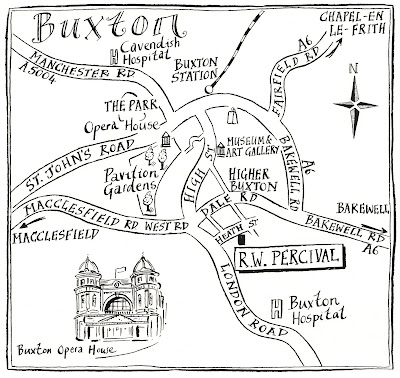 Buxton
CHAPEL-EN
LE-FRITH
A6
Cavendish
Hospital
H
MANCHESTER RD
A5004
BUXTON
STATION
FAIRFIELD RD
N
THE PARK
Opera House
MUSEUM &
ART GALLERY
BAKEWELL RD
A6
ST. JOHN'S ROAD
Pavilion
Gardens
HIGH ST
HIGHER
BUXTON
DALE RD
MACCLESFIELD RD
WEST RD
HEATH ST
BAKEWELL
BAKEWELL RD
A6
MACCLESFIELD
R.W. PERCIVAL
LONDON ROAD
H
Buxton
Hospital
Buxton Opera House